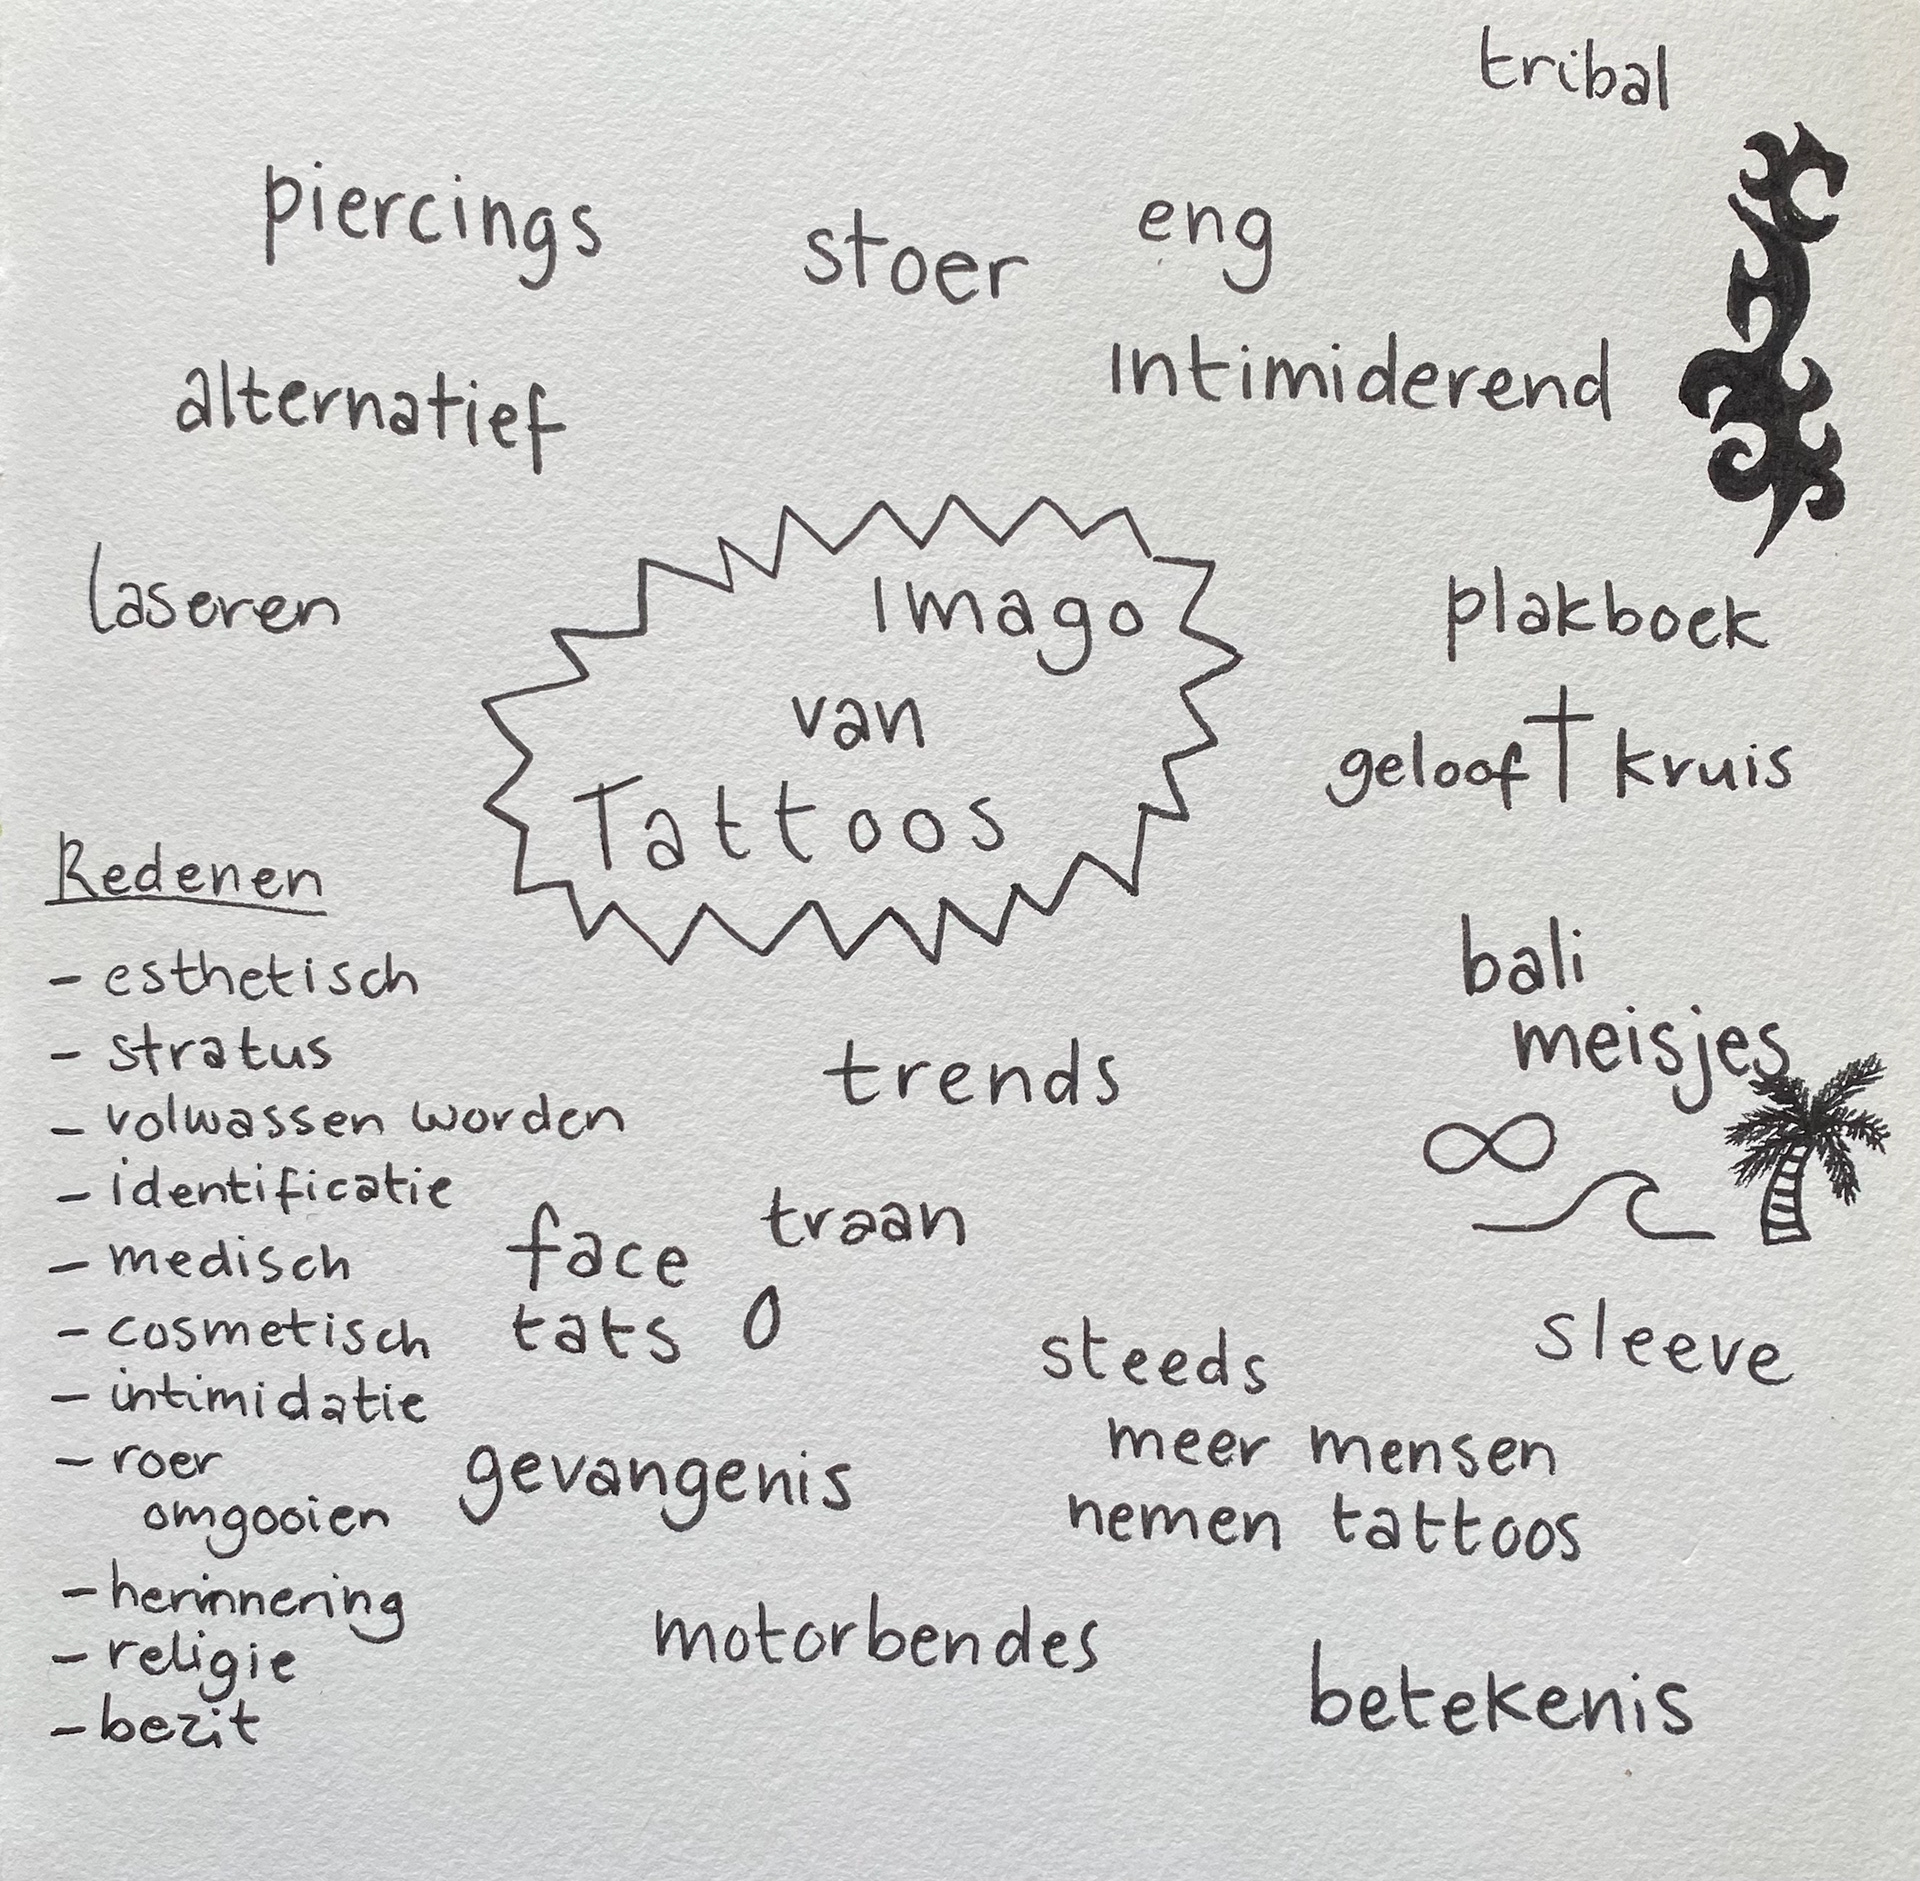 tribal
piercings
stoer
eng
intimiderend
alternatief
laseren
Imago
van
Tattoos
plakboek
geloof kruis
Redenen
- esthetisch
- stratus
- volwassen worden
- identificatie
- medisch
- cosmetisch
- intimidatie
- roer
omgooien
- herinnering
- religie
- bezit
bali
meisjes
trends
face
tats
traan
sleeve
steeds
meer mensen
nemen tattoos
gevangenis
motorbendes
betekenis